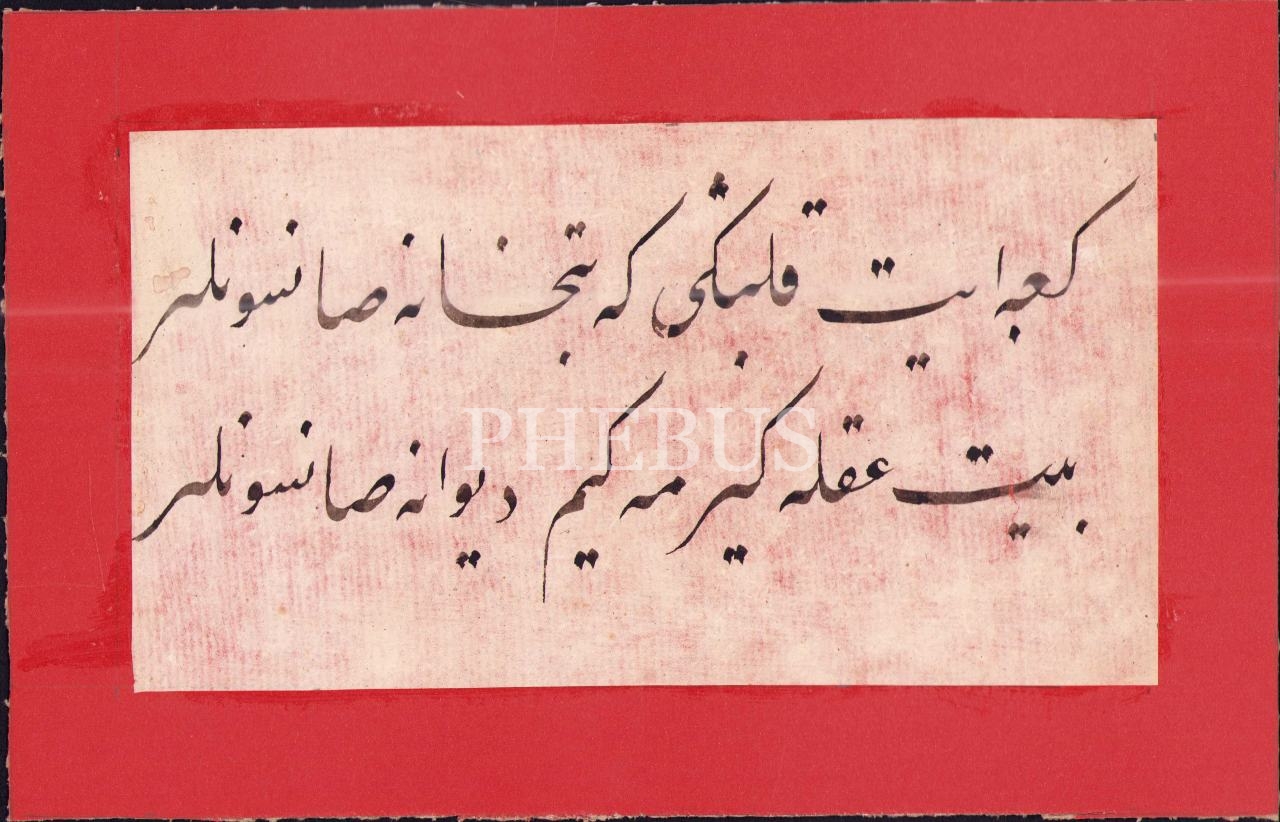 كعبه ايت قلبڭى كه بتخانه صانسونلر
بيت عقله كيرمه كيم ديوانه صانسونلر
PHEBUS